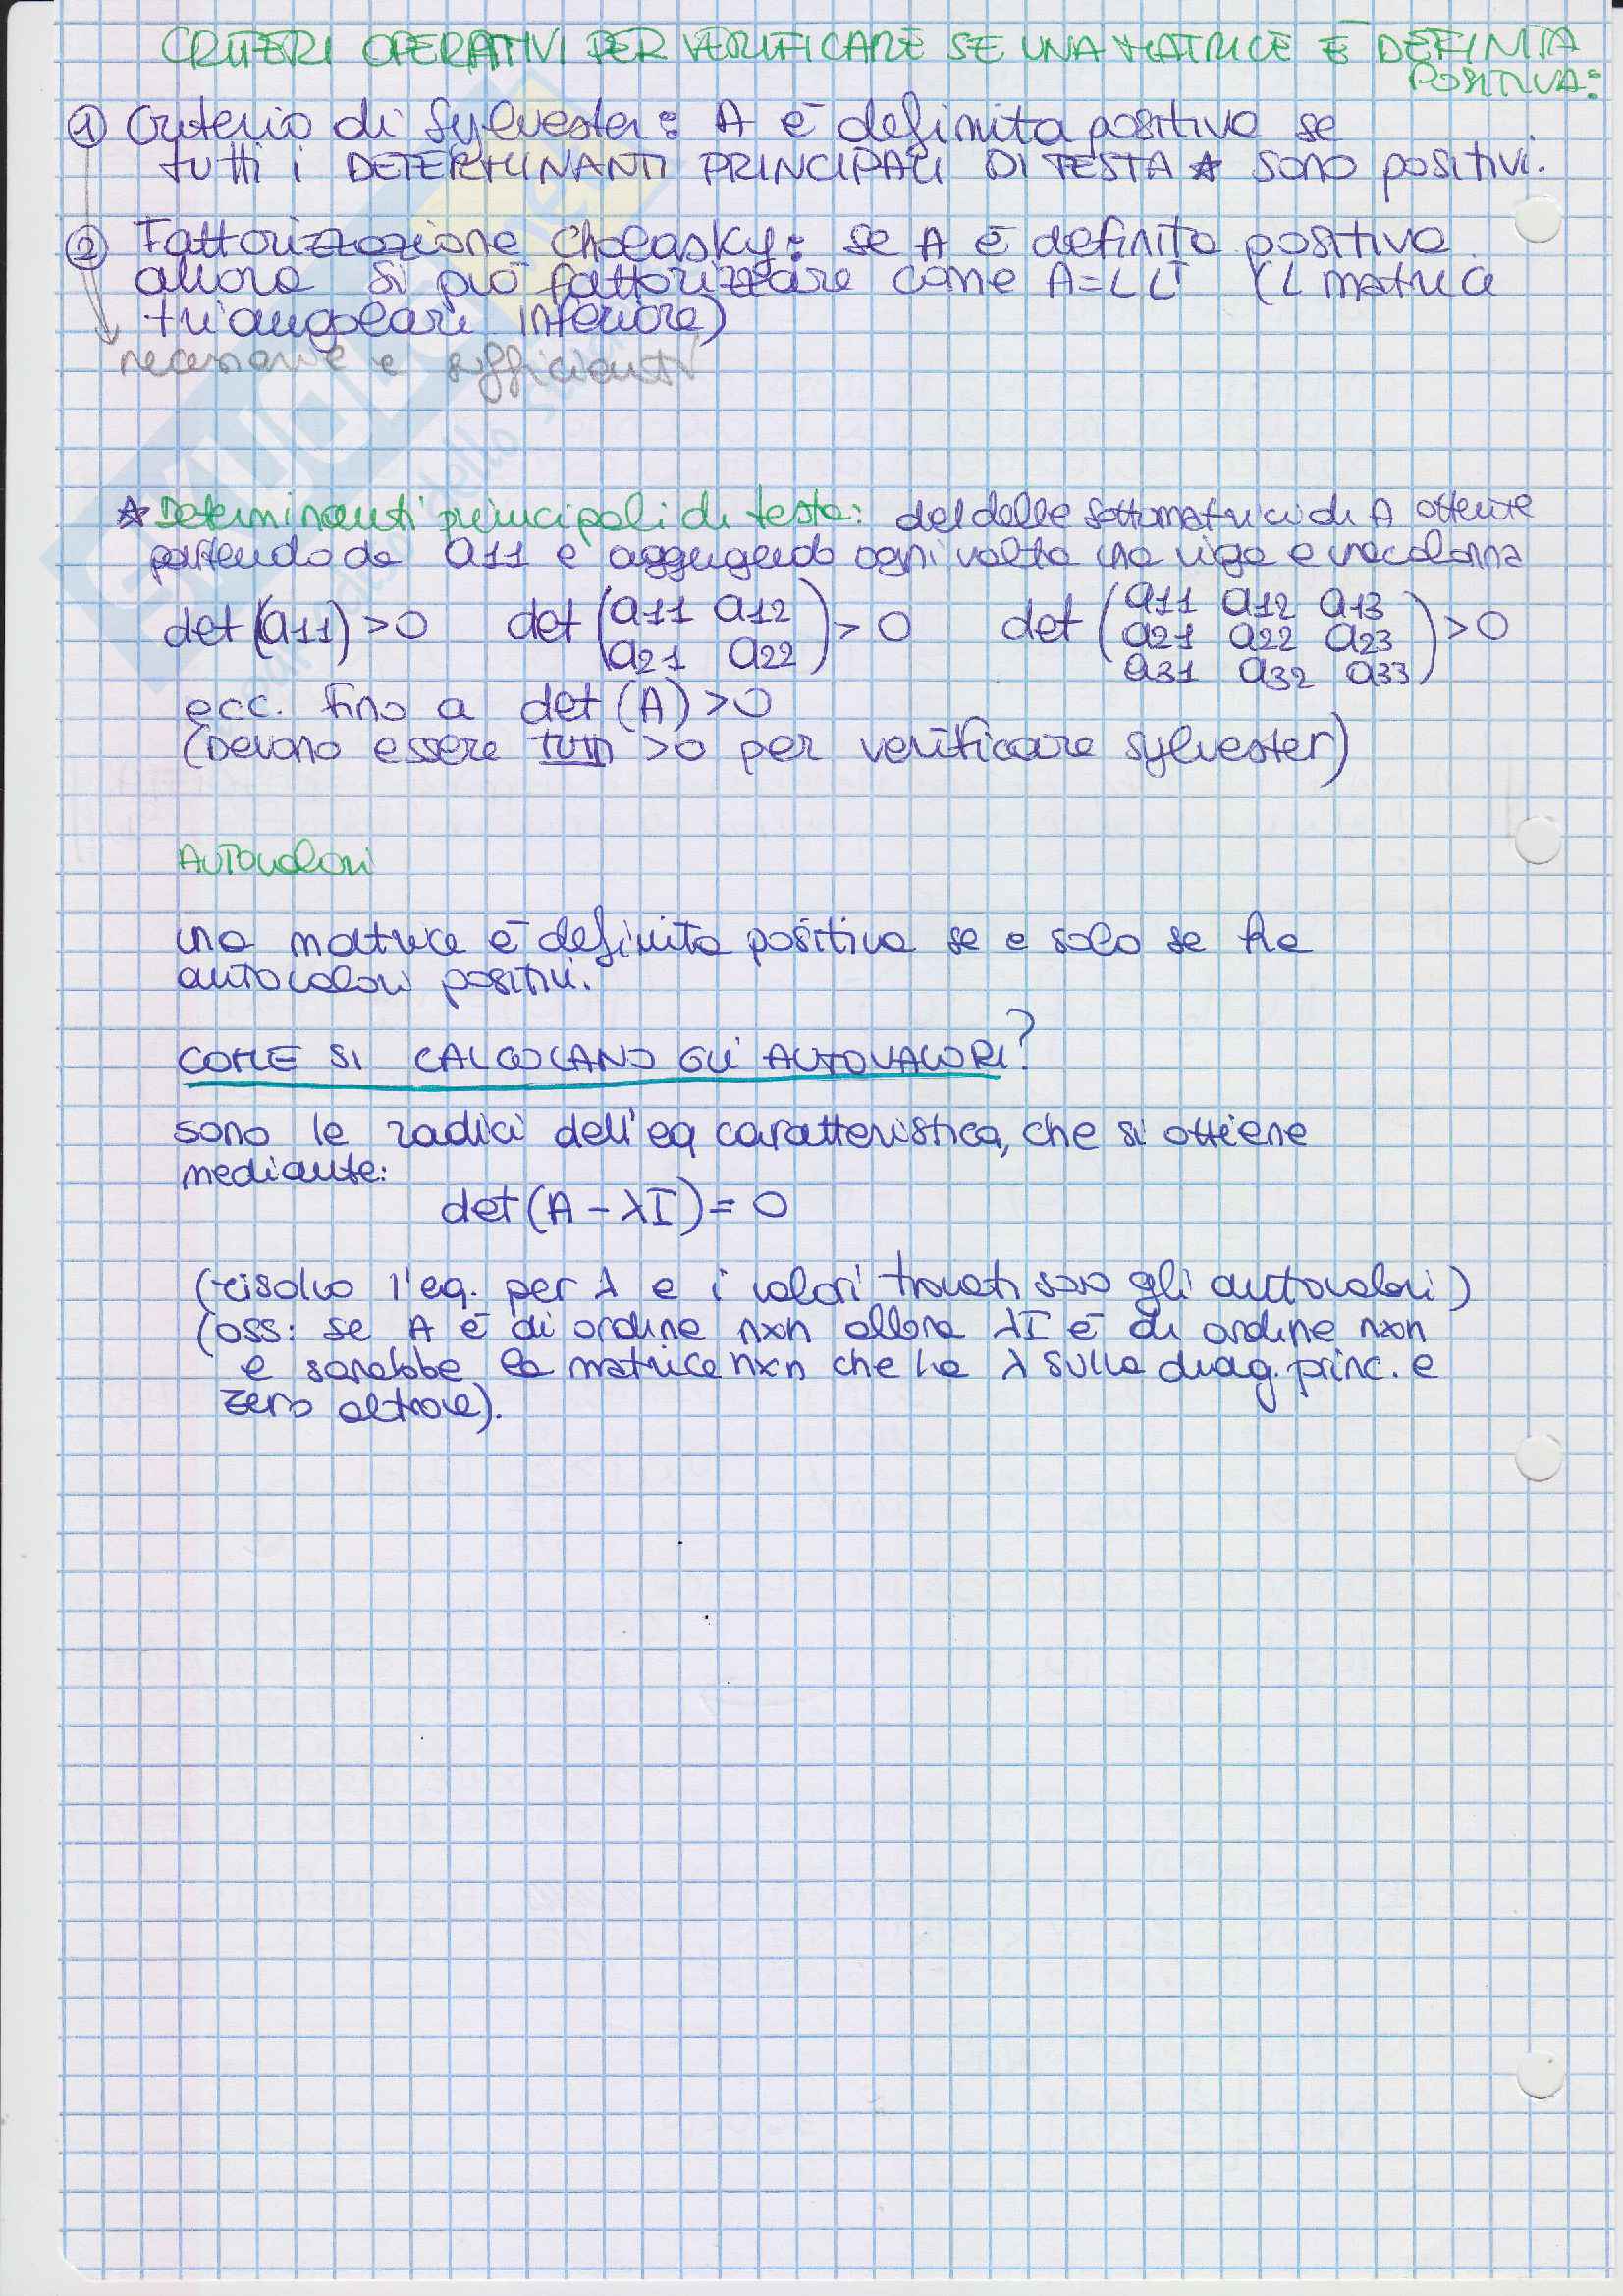 CRITERI OPERATIVI PER VERIFICARE SE UNA MATRICE È DEFINITA
POSITIVA:
① Criterio di Sylvester: A è definita positiva se
tutti i DETERMINANTI PRINCIPALI DI TESTA ☆ sono positivi.
② Fattorizzazione Choleasky: se A è definita positiva
allora si può fattorizzare come A=LLᵀ (L matrice
triangolari inferiore)
necessarie e sufficienti
☆ Determinanti principali di testa: det delle sottomatrici di A ottenute
partendo da a11 e aggiugendo ogni volta una riga e una colonna
det(a11)>0 det(a11 a12 a21 a22)>0 det(a11 a12 a13 a21 a22 a23 a31 a32 a33)>0
ecc. fino a det(A)>0
(Devono essere TUTTI >0 per verificare sylvester)
AUTOvalori
una matrice è definita positiva se e solo se ha
autovalori positivi.
COME SI CALCOLANO GLI AUTOVALORI?
sono le radici dell'eq caratteristica, che si ottiene
mediante:
det(A-λI)=0
(risolvo l'eq. per λ e i valori trovati sono gli autovalori)
(oss: se A è di ordine nxn allora λI è di ordine nxn
e sarebbe la matrice nxn che ha λ sulla diag. princ. e
zero altrove).